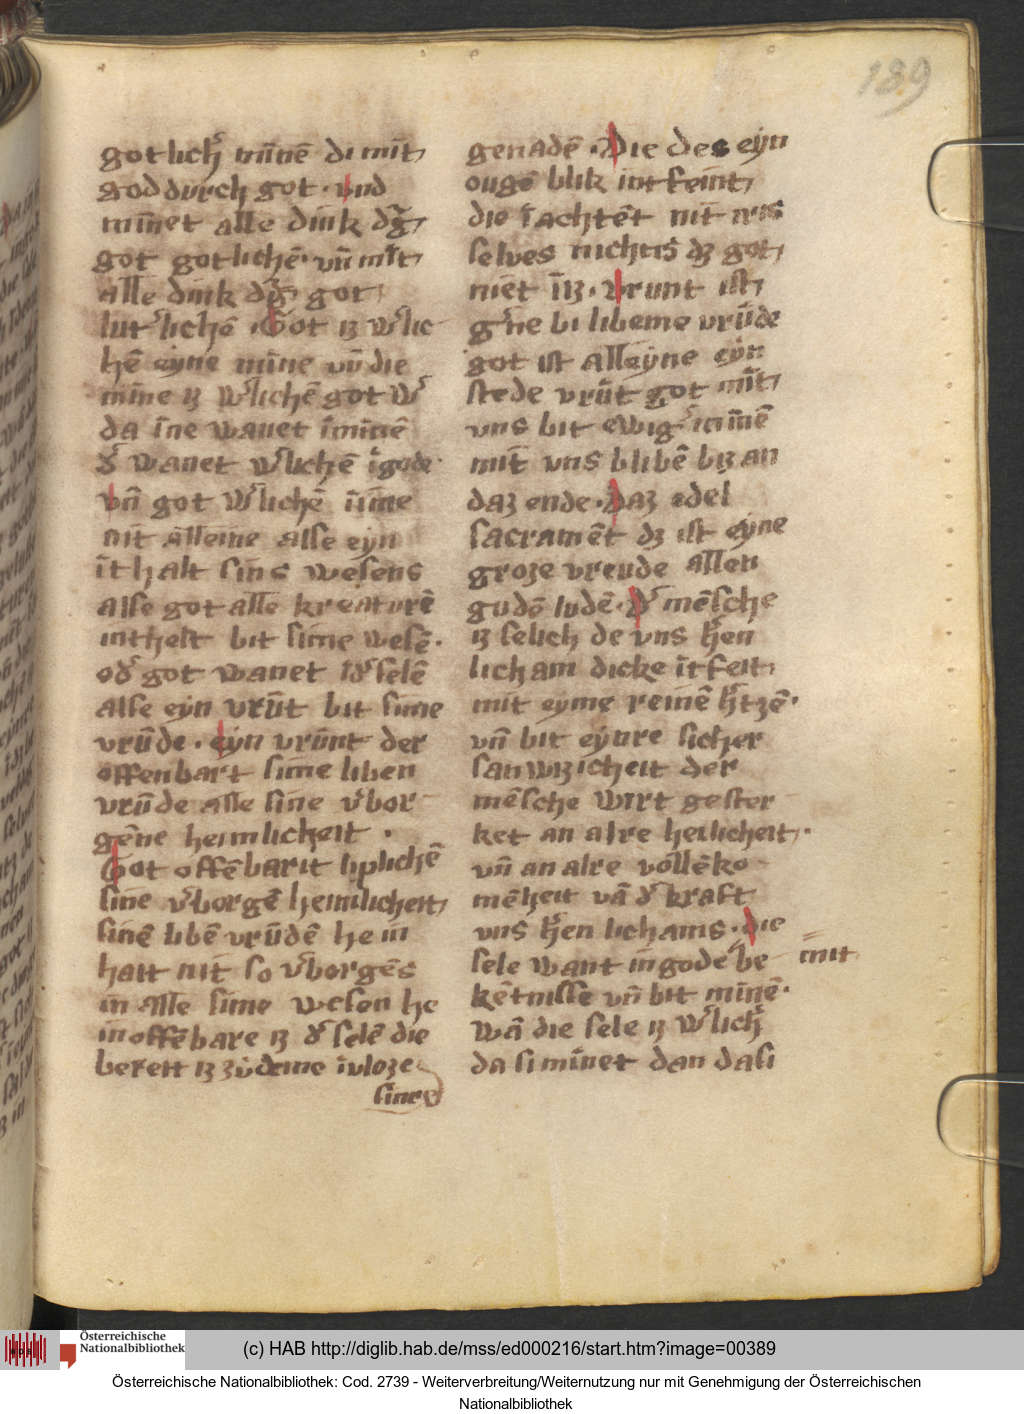 189
gotlich᷑ minnē di mit
god durch got · vnd
minnet alle dink dᷓ
got gotlichē · vn̄ mīt
alle dink dᷓ got
lut᷑lichē · Got iz w᷑lic
hē eyne mīne vn̄ die
mīne iz w᷑lichē got w᷑
da īne wanet īminē
d᷑ wanet w᷑lichē ī gode ·
vn̄ got w᷑lichē īime
nit alleine alse eyn
īthalt sins wesens
alse got alle kreaturē
intheit bit sime wesē ·
od᷑ got wanet ī d᷑ selē
alse eyn vrūt bit sime
vrūde · eyn vrūnt der
offenbart sime liben
vrūde alle sine v᷑bor
gēne heimlickeit ·
Got offēbarit liplichē
sine v᷑borgē heimlicheit
sinē libē vrūdē he in
halt nit so v᷑borgēs
in alle sime wesen he
in offēbare iz d᷑ selē die
bereit iz zů deme īvloze
sinre
genadē · Die des eyn
ougē blik intfeint
die īachtēt nit nis
selves nichtis dz got
niet īiz · vrunt ist
g᷑ne bi libeme vrūde
got ist alleyne eyn
stede vrūt got mīt
vns bit ewig᷑ minē
mīt vns blibē biz an
daz ende · Daz edel
sacramēt dz ist eyne
groze vreude allen
gudē ludē · D᷑ mēsche
iz selich de vns h᷑en
licham dicke ītfeit
mit eyme reinē h᷑tzē ·
vn̄ bit eynre sicher
sanwizicheit der
mēsche wirt gester
ket an alre heilicheit ·
vn̄ an alre vollēko
mēheit vā d᷑ kraft
vns h᷑en lichams · die
sele want in gode be mit
kētnisse vn̄ bit minē ·
wā die sele iz w᷑lich᷑
da si minet dan da si
Österreichische
Nationalbibliothek
(c) HAB http://diglib.hab.de/mss/ed000216/start.htm?image=00389
Österreichische Nationalbibliothek: Cod. 2739 - Weiterverbreitung/Weiternutzung nur mit Genehmigung der Österreichischen
Nationalbibliothek